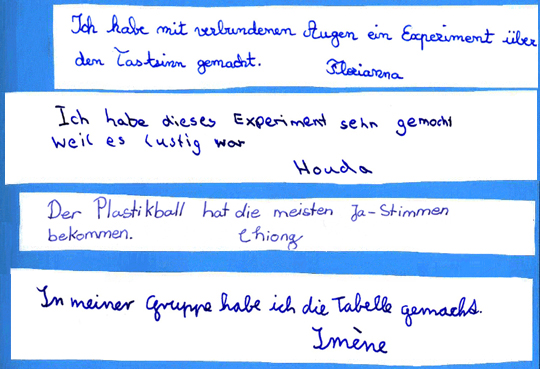 Ich habe mit verbundenen Augen ein Experiment über
den Tastsinn gemacht. Florianna
Ich habe dieses Experiment sehn gemocht
weil es lustig war
Houda
Der Plastikball hat die meisten Ja-Stimmen
bekommen. Chiong
In meiner Gruppe habe ich die Tabelle gemacht.
Imène